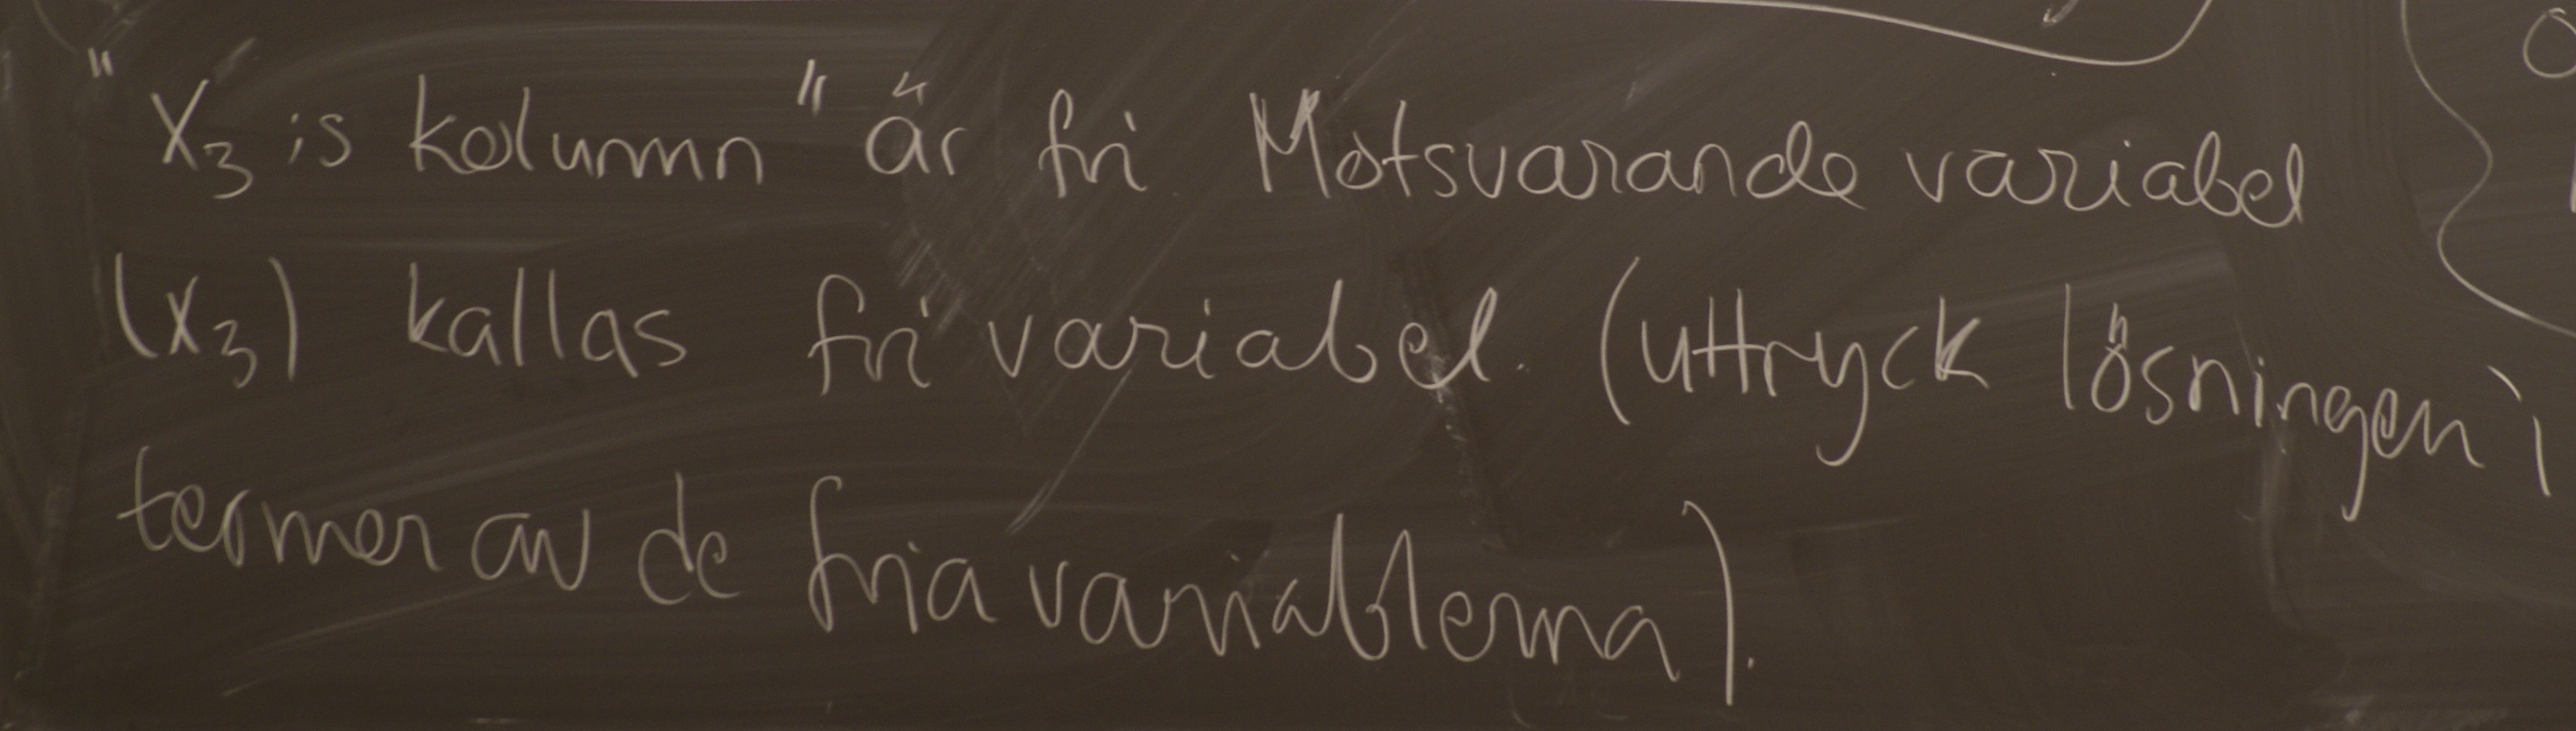 "x₃ is kolumn" är fri. Motsvarande variabel
(x₃) kallas fri variabel. (uttryck lösningen i
termer av de fria variablerna).